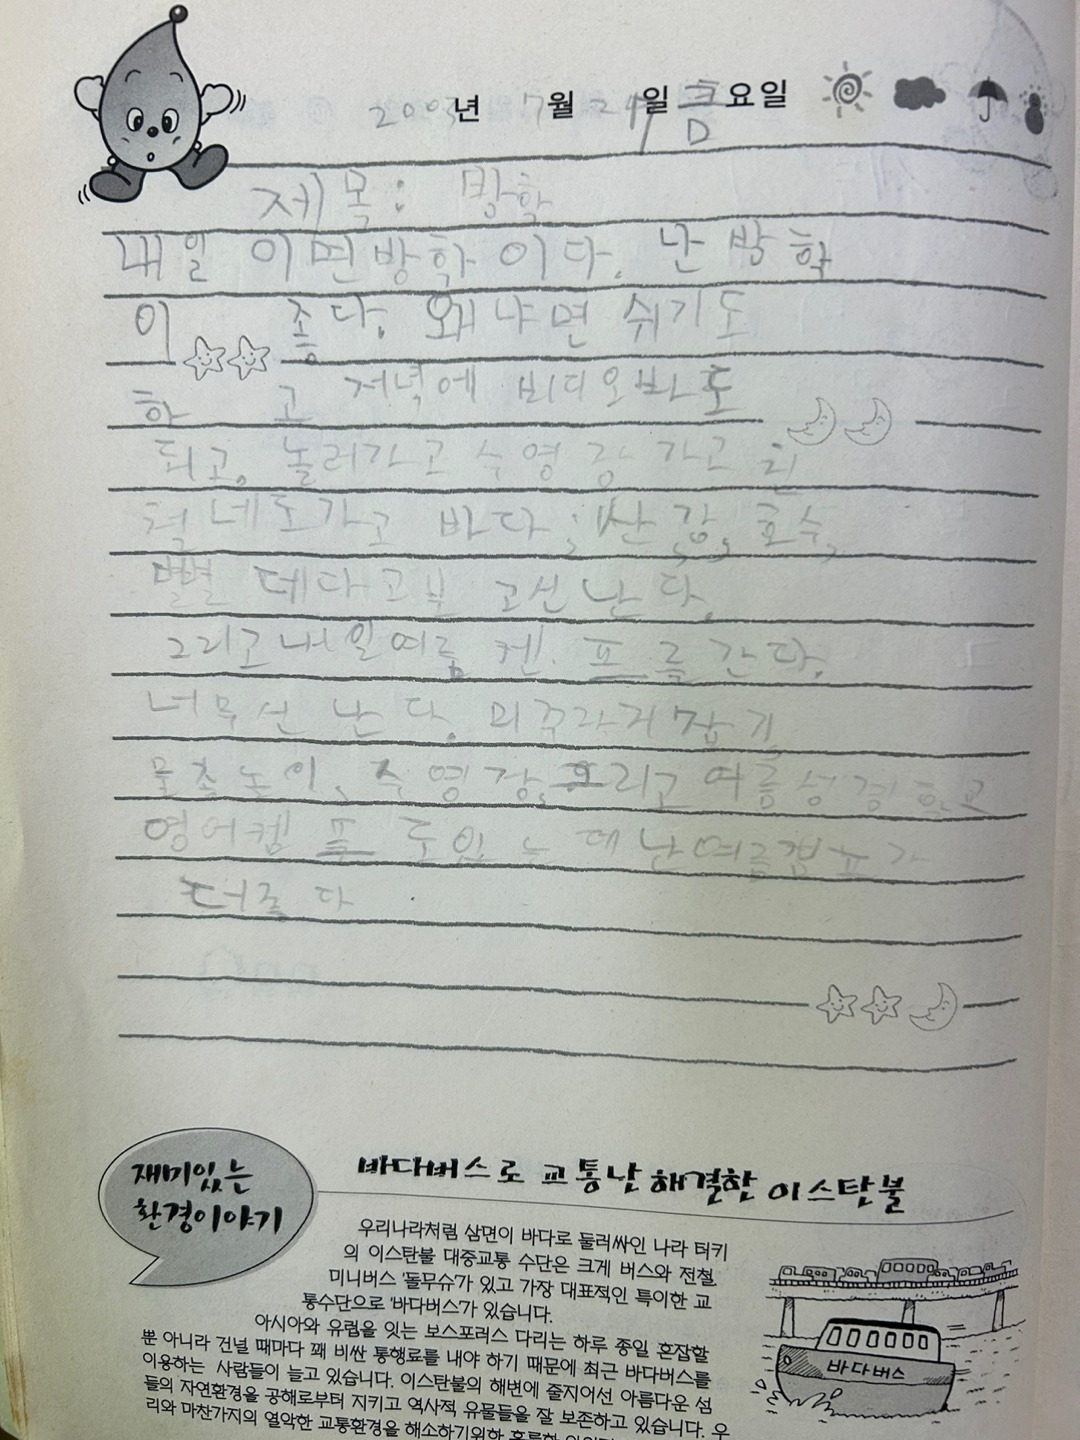 2003년 7월 24일 금요일
제목: 방학
내일 이면방학 이다. 난 방학
이 좋다. 왜냐면 쉬기도
하고 저녁에 비디오봐도
되고, 놀러가고 수영장 가고 친
척네도가고 바다, 산, 강, 호수,
별별 데다고부 고신난다.
그리고내일여름 켐프를간다.
너무신난다. 미꾸라지잡기
물총놀이, 수영장, 그리고 여름성경학교
영어켐프 도있는데 난여름캠프가
더좋다
재미있는
환경이야기
바다버스로 교통난 해결한 이스탄불
우리나라처럼 삼면이 바다로 둘러싸인 나라 터키
의 이스탄불 대중교통 수단은 크게 버스와 전철,
미니버스 '돌무슈'가 있고 가장 대표적인 특이한 교
통수단으로 '바다버스'가 있습니다.
아시아와 유럽을 잇는 보스포러스 다리는 하루 종일 혼잡할
뿐 아니라 건널 때마다 꽤 비싼 통행료를 내야 하기 때문에 최근 바다버스를
이용하는 사람들이 늘고 있습니다. 이스탄불의 해변에 줄지어선 아름다운 섬
들의 자연환경을 공해로부터 지키고 역사적 유물들을 잘 보존하고 있습니다. 우
리와 마찬가지의 열악한 교통환경을 해소하기위한
바다버스